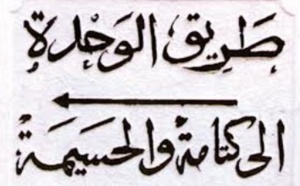 طَرِيق الوَحْدَة
الى كتامة والحسيمة